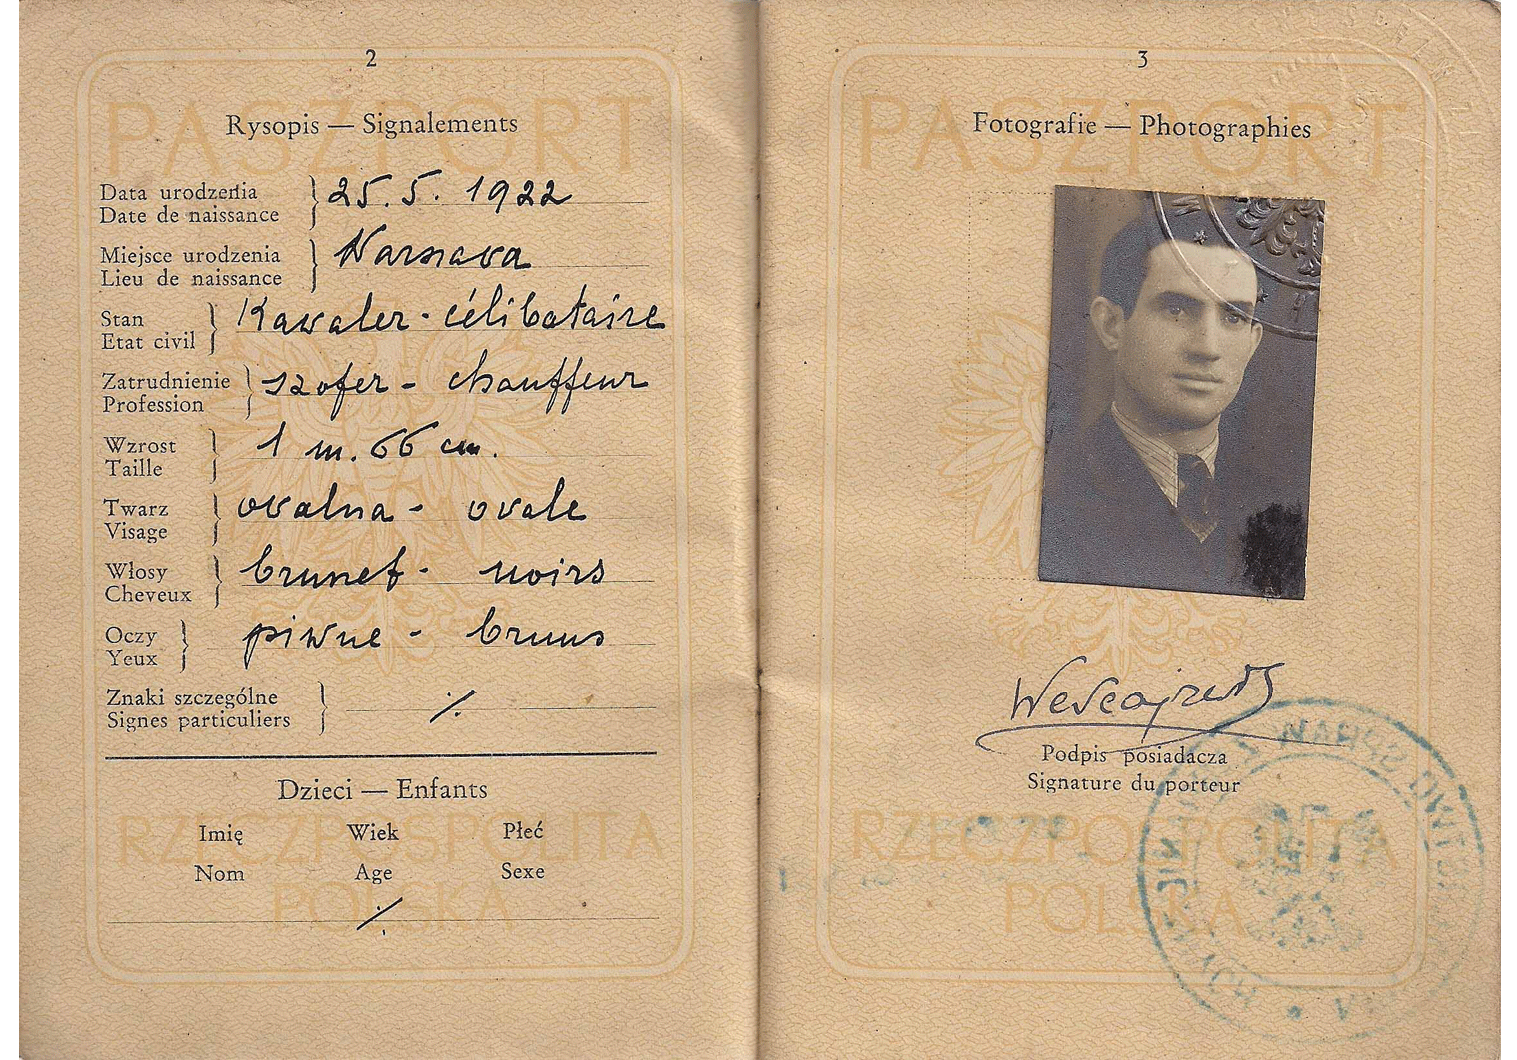 2
PASZPORT
Rysopis — Signalements
Data urodzenia
Date de naissance
25. 5. 1922
Miejsce urodzenia
Lieu de naissance
Warszawa
Stan
Etat civil
Kawaler - célibataire
Zatrudnienie
Profession
szofer - chauffeur
Wzrost
Taille
1 m. 66 cm.
Twarz
Visage
owalna - ovale
Włosy
Cheveux
brunet - noirs
Oczy
Yeux
piwne - bruns
Znaki szczególne
Signes particuliers
⁒
Dzieci — Enfants
Imię Wiek Płeć
Nom Age Sexe
⁒
RZECZPOSPOLITA
POLSKA
3
PASZPORT
Fotografie — Photographies
Podpis posiadacza
Signature du porteur
RZECZPOSPOLITA
POLSKA